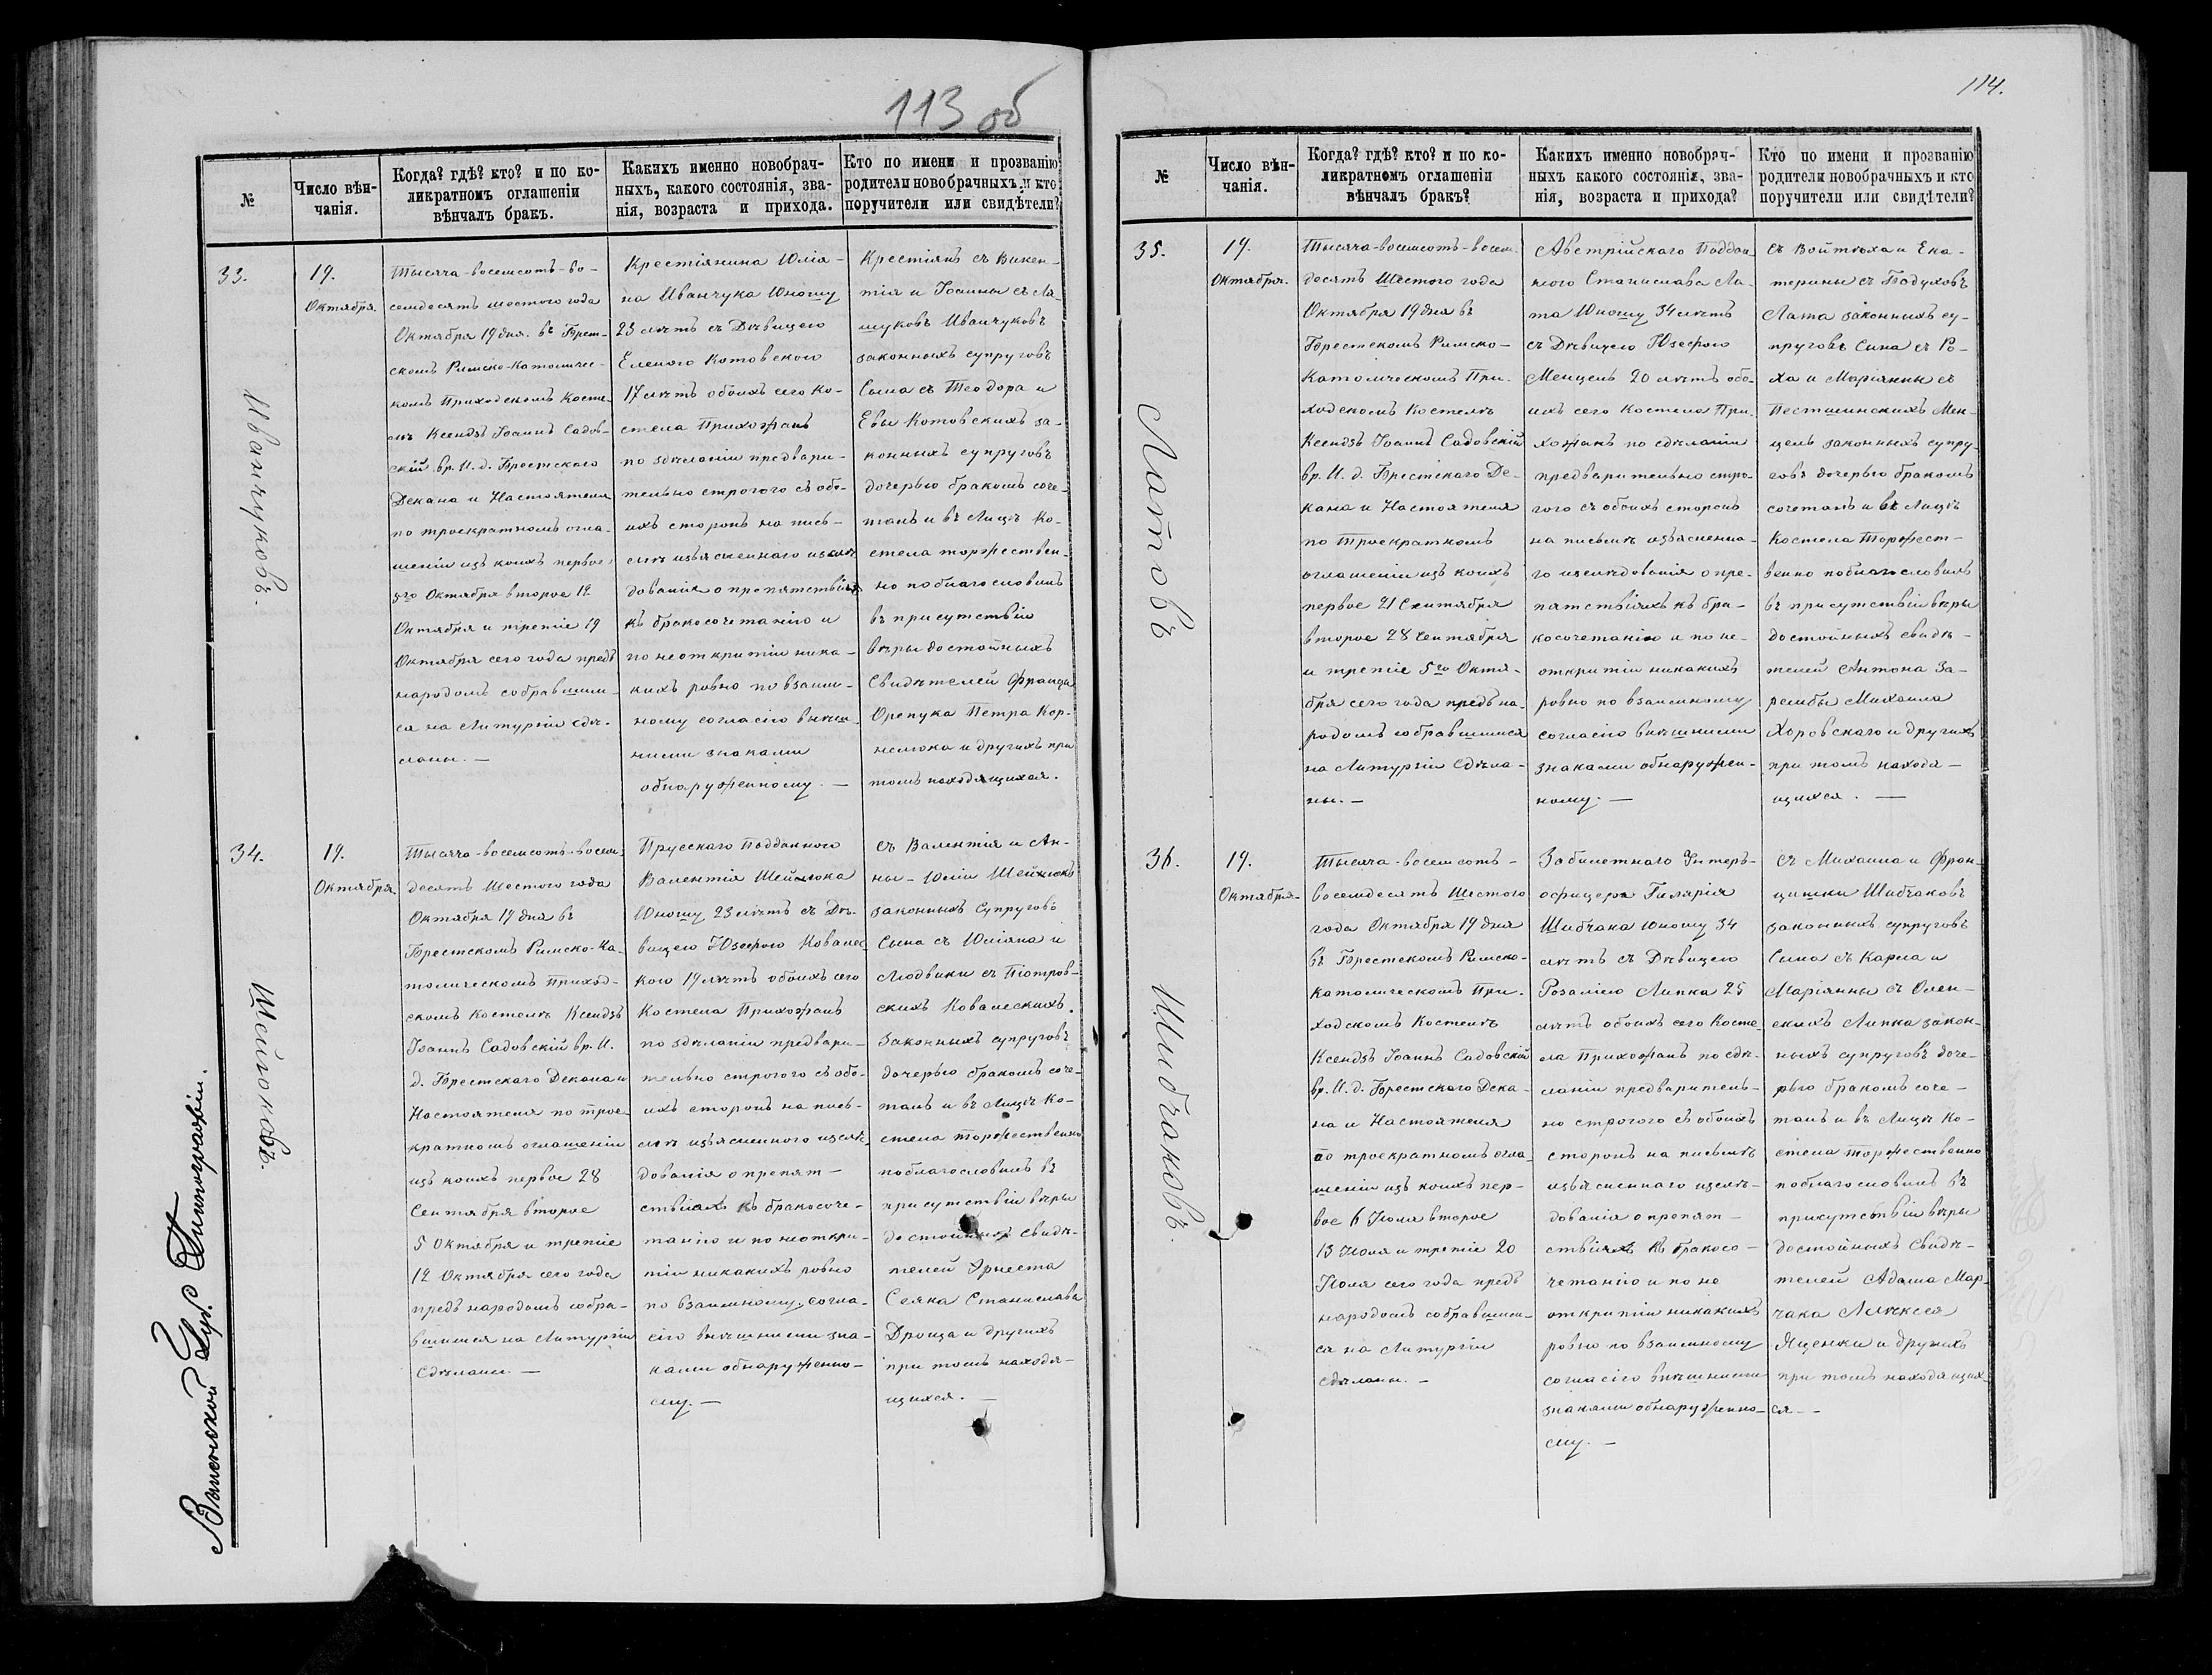 113 об
№
Число вѣн-
чанія.
Когда? гдѣ? кто? и по ко-
ликратномъ оглашеніи
вѣнчалъ бракъ.
Какихъ именно новобрач-
ныхъ, какого состоянія, зва-
нія, возраста и прихода.
Кто по имени и прозванію
родители новобрачныхъ и кто
поручители или свидѣтели?
33.
Иванчуковъ.
19.
Октября
Тысяча-восемсотъ-во-
семдесятъ шостого года
Октября 19 дня въ Брест-
скомъ Римско-Католичес-
комъ Приходскомъ Косте-
лѣ Ксендзъ Іоаннъ Садов-
скій вр. И. д. Брестскаго
Декана и Настоятеля
по троекратномъ огла-
шеніи изъ коихъ первое
Октября второе 12
Октября и третіе 19
Октября сего года предъ
народомъ собравшим-
ся на Литургіи сдѣ-
ланы. —
Крестіянина Юлія-
на Иванчука Юношу
23 лѣтъ съ Дѣвицею
Еленою Котовскою
17 лѣтъ обоихъ сего Ко-
стела Прихожанъ
по здѣланіи предвари-
тельно строгого съ обо-
ихъ сторонъ на пись-
мѣ изъясненнаго изслѣ
дованія о препятствіяхъ
къ бракосочетанію и
по неоткритіи ника-
кихъ ровно по взаим-
ному согласію внѣш-
ними знаками
обнаруженному. —
Крестіянъ съ Викен-
тія и Іоанны съ Ля-
шуковъ Иванчуковъ
законныхъ супруговъ
Сына съ Теодора и
Евы Котовскихъ за-
конныхъ супруговъ
дочерью бракомъ соче-
талъ и въ Лицѣ Ко-
стела торжествен-
но поблагословилъ
въ присутствіи
вѣры достойныхъ
Свидѣтелей Франца
Орепука Петра Кор-
нелюка и другихъ при
томъ находящихся.
34.
Шейнюковъ.
19.
Октября
Тысяча-восемсотъ-восем-
десятъ Шестого года
Октября 19 дня въ
Брестскомъ Римско-Ка-
толическомъ Приход-
скомъ Костелѣ Ксендзъ
Іоаннъ Садовскій вр. И.
д. Брестскаго Декана и
Настоятеля по трое-
кратномъ оглашеніи
изъ коихъ первое 28
Сентября второе
5 Октября и третіе
12 Октября сего года
предъ народомъ собра-
вшимся на Литургіи
Сдѣланы. —
Прусскаго Подданного
Валентія Шейнюка
Юношу 23 лѣтъ съ Дѣ-
вицею Юзефою Ковалес
кою 19 лѣтъ обоихъ сего
Костела Прихожанъ
по здѣланіи предвари-
тельно строгого съ обо-
ихъ сторонъ на пись-
мѣ изъясненного изслѣ-
дованія о препят-
ствіяхъ къ бракосоче-
танію и по неоткри-
тіи никакихъ ровно
по взаимному согла-
сію внѣшними зна-
ками обнаруженно-
му. —
съ Валентія и Ан-
ны-Юліи Шейнюкъ
законныхъ Супруговъ
Сына съ Юліяна и
Людвики съ Піотров-
скихъ Ковалескихъ.
Законныхъ супруговъ
дочерью бракомъ соче-
талъ и въ Лицѣ Ко-
стела торжественно
поблагословилъ въ
присутствіи вѣры
достойныхъ свидѣ-
телей Эрнеста
Сеяка Станислава
Дроща и другихъ
при томъ находя-
щихся. —
Виленской Губ. Типографіи.
114.
№
Число вѣн-
чанія.
Когда? гдѣ? кто? и по ко-
ликратномъ оглашеніи
вѣнчалъ бракъ?
Какихъ именно новобрач-
ныхъ какого состоянія, зва-
нія, возраста и прихода?
Кто по имени и прозванію
родители новобрачныхъ и кто
поручители или свидѣтели?
35.
Латовъ
19.
Октября.
Тысяча-восемсотъ-восем-
десятъ Шестого года
Октября 19 дня въ
Брестскомъ Римско-
Католическомъ При-
ходскомъ Костелѣ
Ксендзъ Іоаннъ Садовскій
вр. И. д. Брестскаго Де-
кана и Настоятеля
по Троекратномъ
оглашеніи изъ коихъ
первое 21 Сентября
второе 28 Сентября
и третіе 5го Октя-
бря сего года предъ на-
родомъ собравшимся
на Литургіи Сдѣла-
ны. —
Австрійскаго Поддан
ного Станислава Ла-
та Юношу 34 лѣтъ
съ Дѣвицею Юзефою
Менцель 20 лѣтъ обо-
ихъ сего Костела При-
хожанъ по сдѣланіи
предварительно стро-
гого съ обоихъ сторонъ
на письмѣ изъясненна-
го изслѣдованія о пре-
пятствіяхъ къ бра-
косочетанію и по не-
откритіи никакихъ
ровно по взаимному
согласію внѣшними
знаками обнаружен-
ному. —
съ Войтѣха и Ека-
терины съ Бодуховъ
Лата законныхъ су-
пруговъ Сына съ Ро-
ха и Маріянны съ
Пестшинскихъ Мен-
цель законныхъ супру-
говъ дочерью бракомъ
сочеталъ и въ Лицѣ
Костела Торжест-
венно поблагословилъ
въ присутствіи вѣры
достойныхъ свидѣ-
телей Антона За-
рембы Михаила
Хоровскаго и другихъ
при томъ находя-
щихся. —
36.
Шибчаковъ.
19.
Октября
Тысяча-восемсотъ-
восемдесятъ Шестого
года Октября 19 дня
въ Брестскомъ Римско-
Католическомъ При-
ходскомъ Костелѣ
Ксендзъ Іоаннъ Садовскій
вр. И. д. Брестскаго Дека-
на и Настоятеля
по троекратномъ огла-
шеніи изъ коихъ пер-
вое 6 Іюля второе
13 Іюля и третіе 20
Іюля сего года предъ
народомъ собравшим-
ся на Литургіи
сдѣланы. —
Забилетнаго Унтеръ-
офицера Гилярія
Шибчака юношу 34
лѣтъ съ Дѣвицею
Розалією Липка 25
лѣтъ обоихъ сего Косте-
ла Прихожанъ по сдѣ-
ланіи предваритель-
но строгого съ обоихъ
сторонъ на письмѣ
изъясненнаго изслѣ-
дованія о препят-
ствіяхъ къ бракосо-
четанію и по не
откритіи никакихъ
ровно по взаимному
согласію внѣшними
знаками обнаруженно-
му. —
съ Михаила и Фран-
цишки Шибчаковъ
законныхъ супруговъ
Сына съ Карла и
Маріянны съ Олен-
скихъ Липка закон-
ныхъ супруговъ доче-
рью бракомъ соче-
талъ и въ Лицѣ Ко-
стела торжественно
поблагословилъ въ
присутствіи вѣры
достойныхъ Свидѣ-
телей Адама Мар-
чака Алѣксея
Яценки и другихъ
при томъ находящих-
ся —